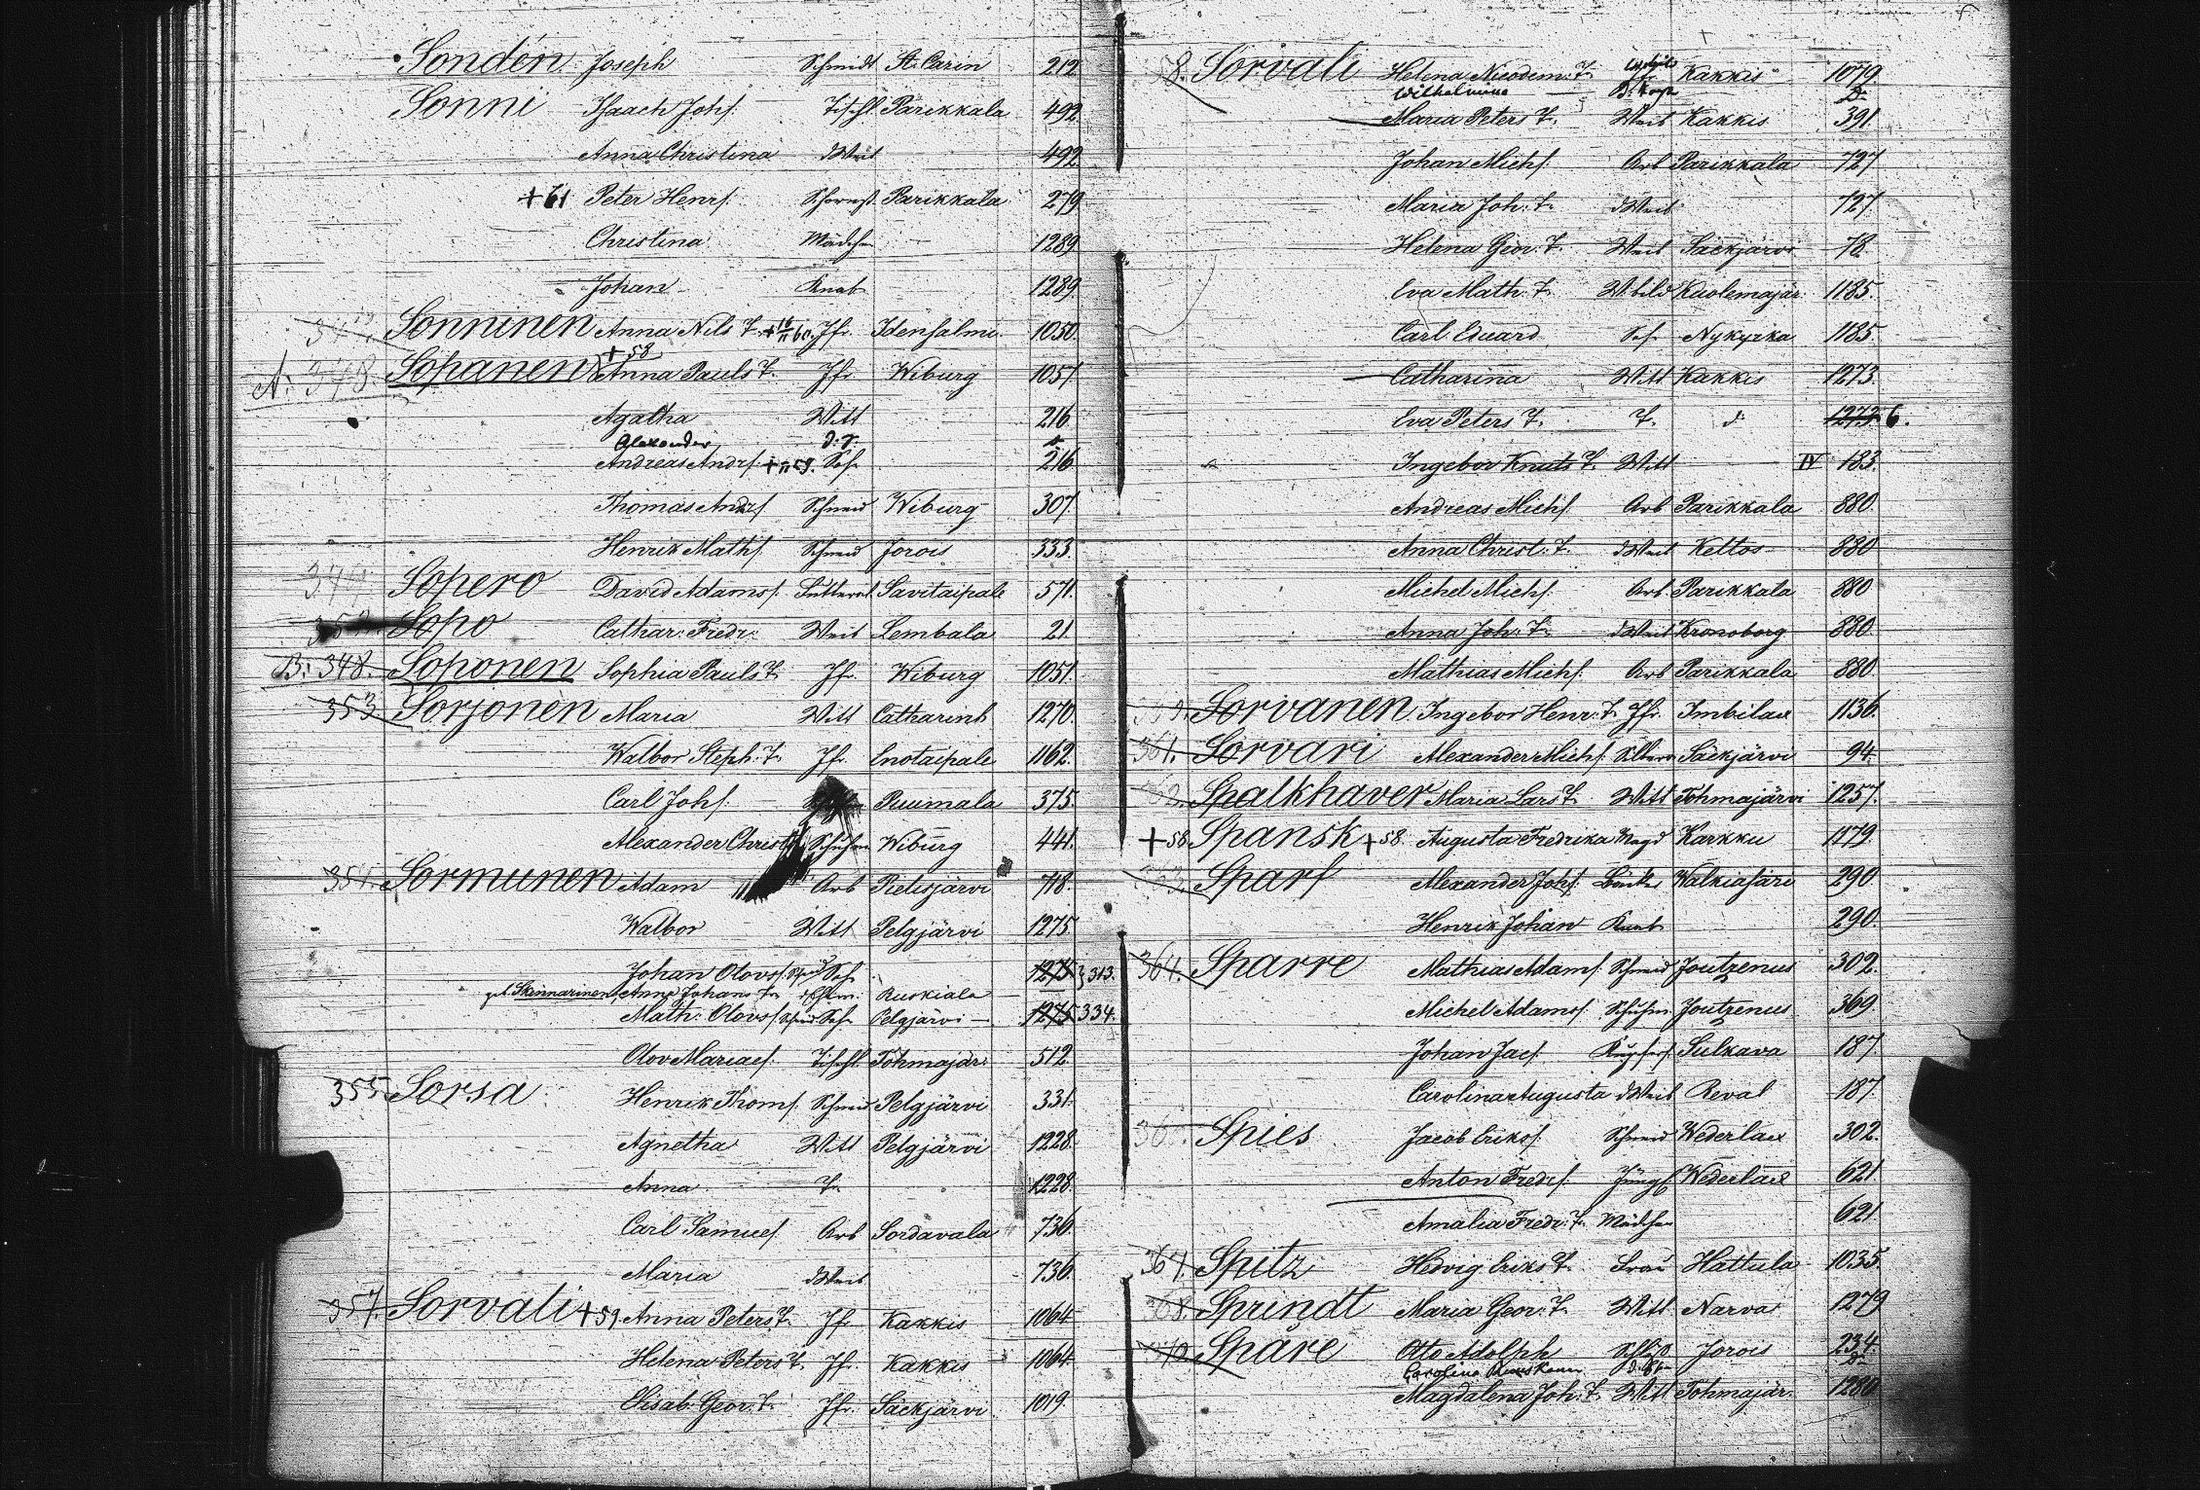 Sondén Joseph Schmidt St. Carin 212
Sonni Isaach Johs. Tischl. Parikkala 492
Anna Christina d Weib 492
+61 Peter Henrs. Parikkala 279
Christina Mädch 1289
Johan Knab 1289
Sonninen Anna Nils T. Jfr. Idensalmi 1050
A: 348. Sopanen +58 Anna Pauls T. Jfr Wiburg 1051
Agatha Witt 216
Alexander d. T.
Andreas Andrs. +59. Soh 216
Thomas Andrs Schneid Wiburg 307
Henrik Maths Schneid Jorois 333
349 Sopero David Adamss. Savitaipale 571
Sopo Cathar: Fredr: Weib Lembala 21
B: 348. Soponen Sophia Pauls T. Jfr. Wiburg 1051
353 Sorjonen Maria Witt Catharinb 1270
Walbor Steph. T. Jfr. Enotaipale 1162
Carl Johs. Puumala 375
Alexander Christ Schuhm Wiburg 441
354. Sormunen Adam Arb Pielisjärvi 718
Walbor Witt Pelgjärvi 1275
Johan Olovss. Soh 1275 313.
geb. Skinnarinen, Anna Johans Tr Ruskiala
Math: Olovss Soh Pelgjärvi 1275 334.
Olov Mariaes. Tischl. Tohmajär: 512
355 Sorsa Henrik Thoms. Schneid Pelgjärvi 331
Agnetha Witt Pelgjärvi 1228
Anna T. 1228
Carl Samuels Arb Sordavala 736
Maria d Weib 736
357. Sorvali +59. Anna Peters T. Jfr Kakkis 1064
Helena Peters T. Jfr. Kakkis 1064
Elisab. Geor. T. Jfr. Säckjärvi 1019
8. Sorvali Helena Nicodem. T. Jfr Kakkis 1079
Wilhelmina D.
Maria Peters T. Weib Kakkis 391
Johan Michs. Arb Parikkala 727
Maria Joh: T. d Weib 727
Helena Geor. T. Weib Säckjärvi 78
Eva Math. T. Kuolemajär. 1185
Carl Eduard Soh Nykyrka 1185
Catharina Witt Kakkis 1273
Eva Peters T. T. d: 1273 6.
Ingebor Knuts T. Witt IV 183
Andreas Michs Arb Parikkala 880
Anna Christ. T. d Weib Keltos 880
Michel Michs. Arb. Parikkala 880
Anna Joh. T. d Weib Kronoborg 880
Mathias Michs. Arb Parikkala 880
Sorvanen Ingebor Henr. T. Jfr. Imbilax 1136
361. Sorvari Alexander Michs. Säckjärvi 94
362. Spalkhaver Maria Lars T. Witt Tohmajärvi 1257
+58 Spansk +58. Augusta Fredrika Magd Karkku 1179
363. Sparf Alexander Johs. Walkiasari 290
Henrik Johan Knab 290
364. Sparre Mathias Adams. Schneid Joutzenus 302
Michel Adamss. Schuhm. Joutzenus 369
Johan Jacs. Kupfers Sulkava 187
Carolina Augusta d Weib Reval 187
Spies Jacob Erikss. Schneid Wederlax 302
Anton Fredrs. Wederlax 621
Amalia Fredr. T. Mädchen 621
367. Spitz Hedvig Eriks T. Frau Hattula 1035
368. Sprindt Maria Geor. T. Witt Narva 1279
370 Spåre Otto Adolph Jorois 234
Carolina D.
Magdalena Joh. T. Witt Tohmajär. 1280